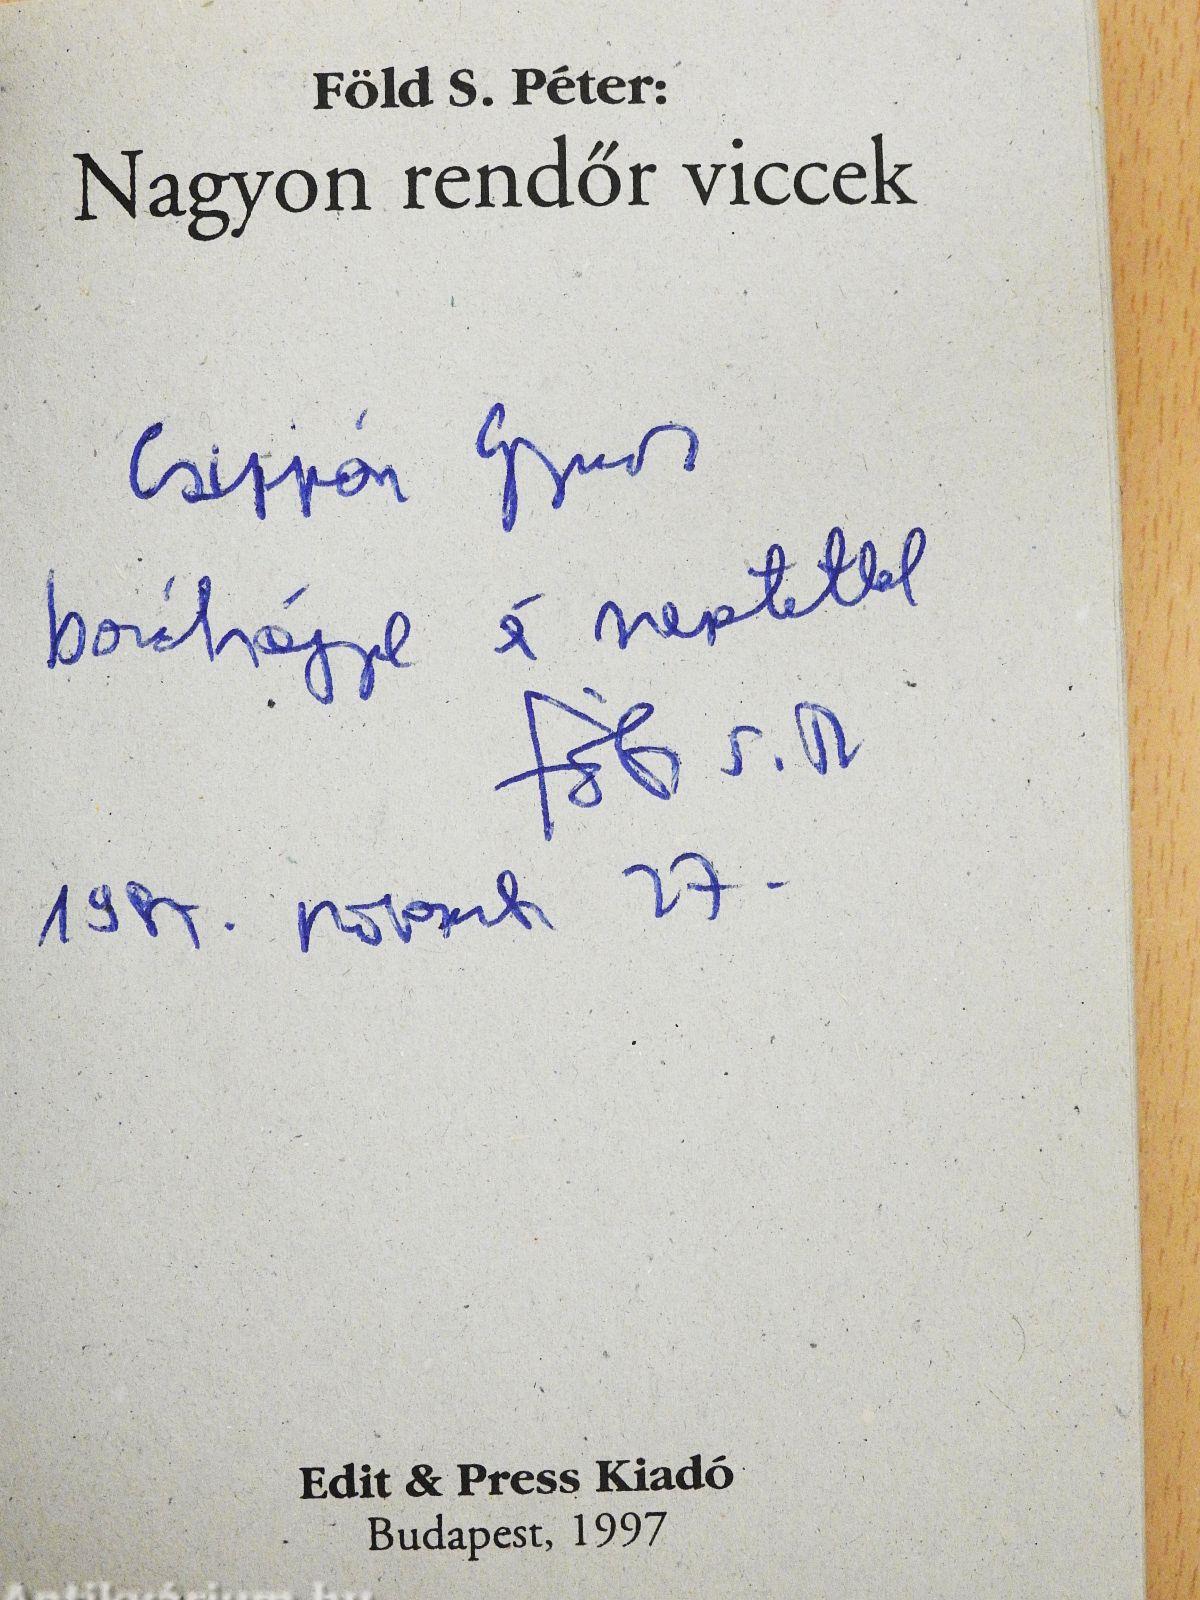 Föld S. Péter:
Nagyon rendőr viccek
barátsággal és szeretettel
Föld S. P
1997. november 27.
Edit & Press Kiadó
Budapest, 1997
Antikvárium.hu